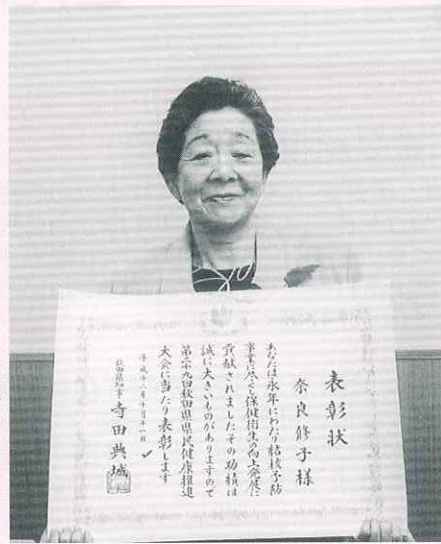 表彰状
奈良修子様
あなたは永年にわたり結核予防
事業に尽くし保健衛生の向上発展に
貢献されましたその功績は
誠に大きいものがありますので
第二十九回秋田県県民健康推進
大会に当たり表彰します
平成十二年十月十一日
秋田県知事 寺田典城